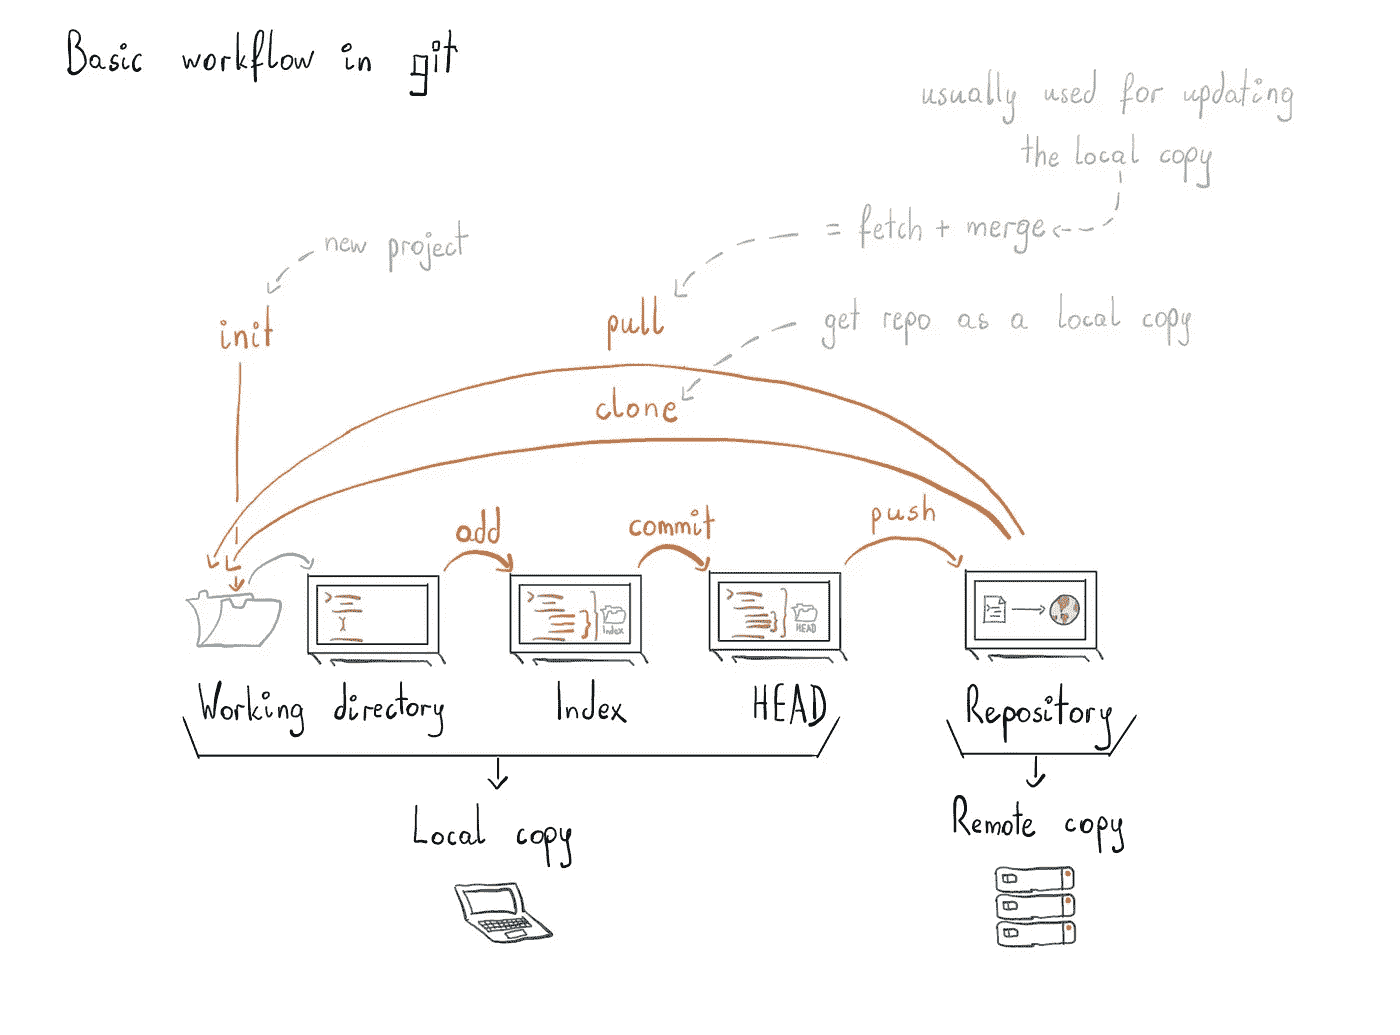 Basic workflow in git
usually used for updating
the local copy
= fetch + merge
new project
init
pull
get repo as a local copy
clone
add
commit
push
Index
HEAD
Working directory
Index
HEAD
Repository
Local copy
Remote copy